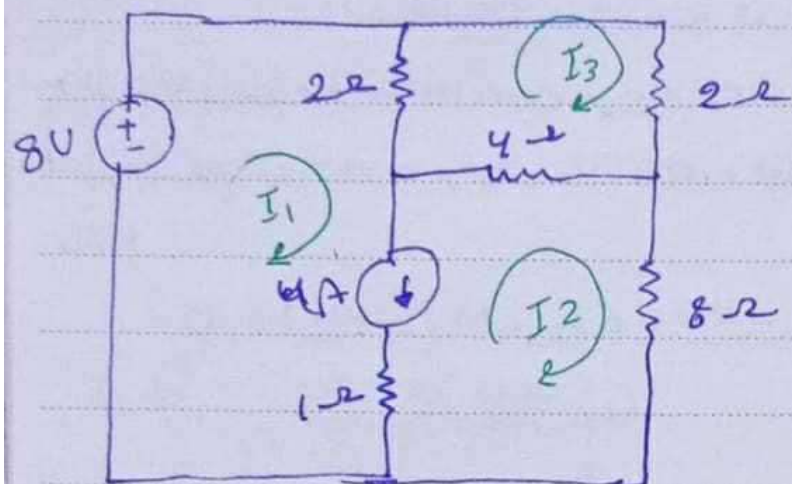 2Ω
I3
2Ω
4Ω
8V
+
-
I1
4A
I2
8Ω
1Ω